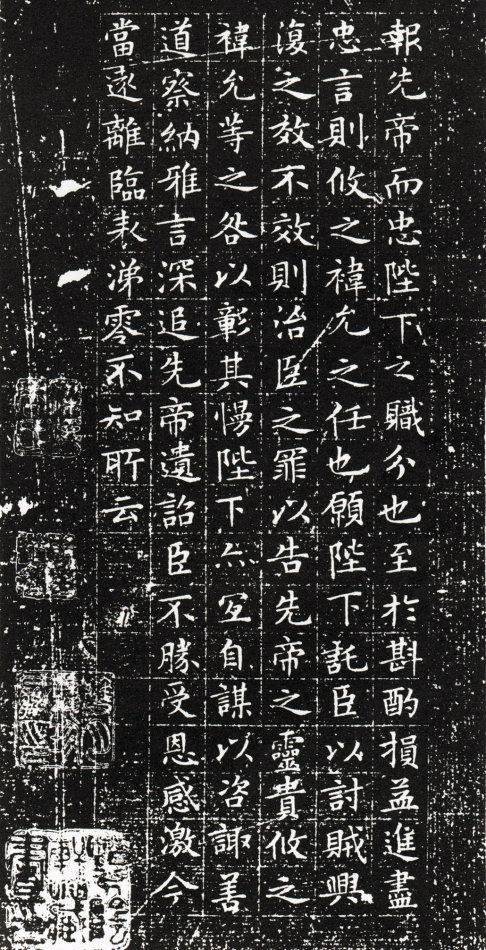 報先帝而忠陛下之職分也至於斟酌損益進盡
忠言則攸之禕允之任也願陛下託臣以討賊興
復之效不效則治臣之罪以告先帝之靈責攸之
禕允等之咎以彰其慢陛下亦宜自謀以咨諏善
道察納雅言深追先帝遺詔臣不勝受恩感激今
當遠離臨表涕零不知所云